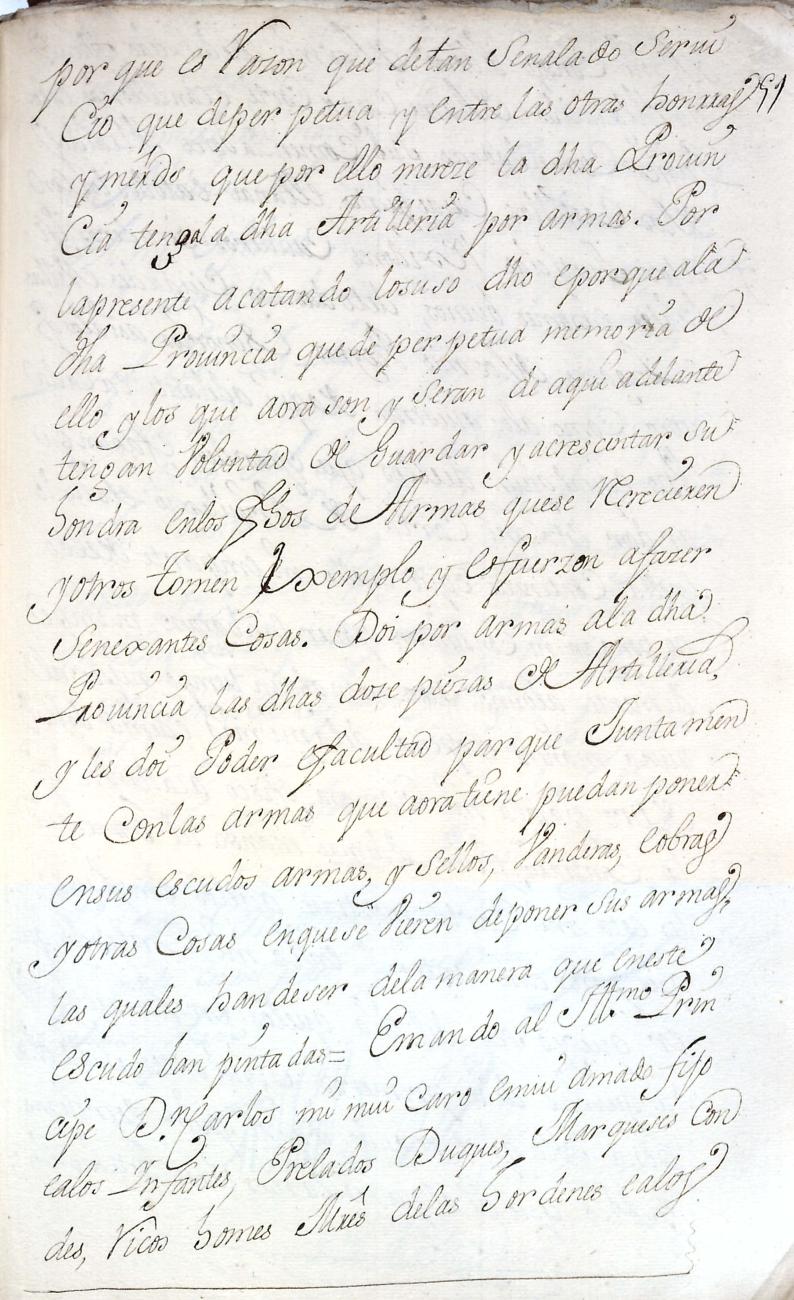 por que es Razon que de tan Senalado Serui
Cio que deper petua y entre las otras honrras
251
y merds que por ello mereze la dha Prouin
Cia tengala dha Artilleria por armas. Por
lapresente acatando losuso dho eporque ala
dha Prouincia quede per petua memoria de
ello ylos que aora son y Seran de aqui adelante
tengan Voluntad de Guardar y acrescentar su
hondra enlos fhos de Armas quese Recrecieren
yotros tomen Exemplo y esfuerzon afazer
Senexantes Cosas. Doi por armas ala dha
Prouincia las dhas doze piezas de Artilleria,
y les doi Poder efacultad par que Juntamen
te Conlas armas que aora tiene puedan poner
ensus escudos armas, y Sellos, Vanderas, eobras
yotras Cosas enquese Vieren deponer sus armas,
las quales han deser dela manera que eneste
escudo ban pintadas= Emando al Illmo Prin
cipe Dn Carlos mi mui Caro emui amado fijo
ealos Infantes, Prelados Duques, Marqueses Con
des, Ricos homes Mres delas hordenes ealos